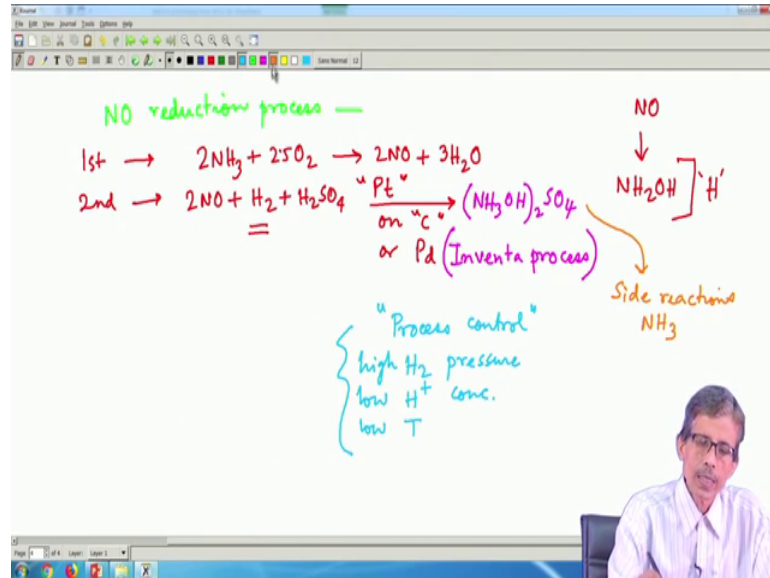 Journal
File Edit View Journal Tools Options Help
Sans Normal 12
NO reduction process —
1st → 2NH3 + 2.5O2 → 2NO + 3H2O
2nd → 2NO + H2 + H2SO4 "Pt" on "C" or Pd (Inventa process) → (NH3OH)2SO4
NO
↓
NH2OH] 'H'
Side reactions
NH3
"Process control"
high H2 pressure
low H+ conc.
low T
Page 4 of 4 Layer: Layer 1